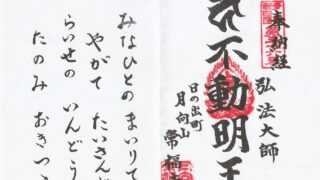 奉納経
弘法大師
不動明王
日の出町
月向山
常福
みなひとの まいりて
やがて たいさんじ
らいせの いんどう
たのみ おきつ